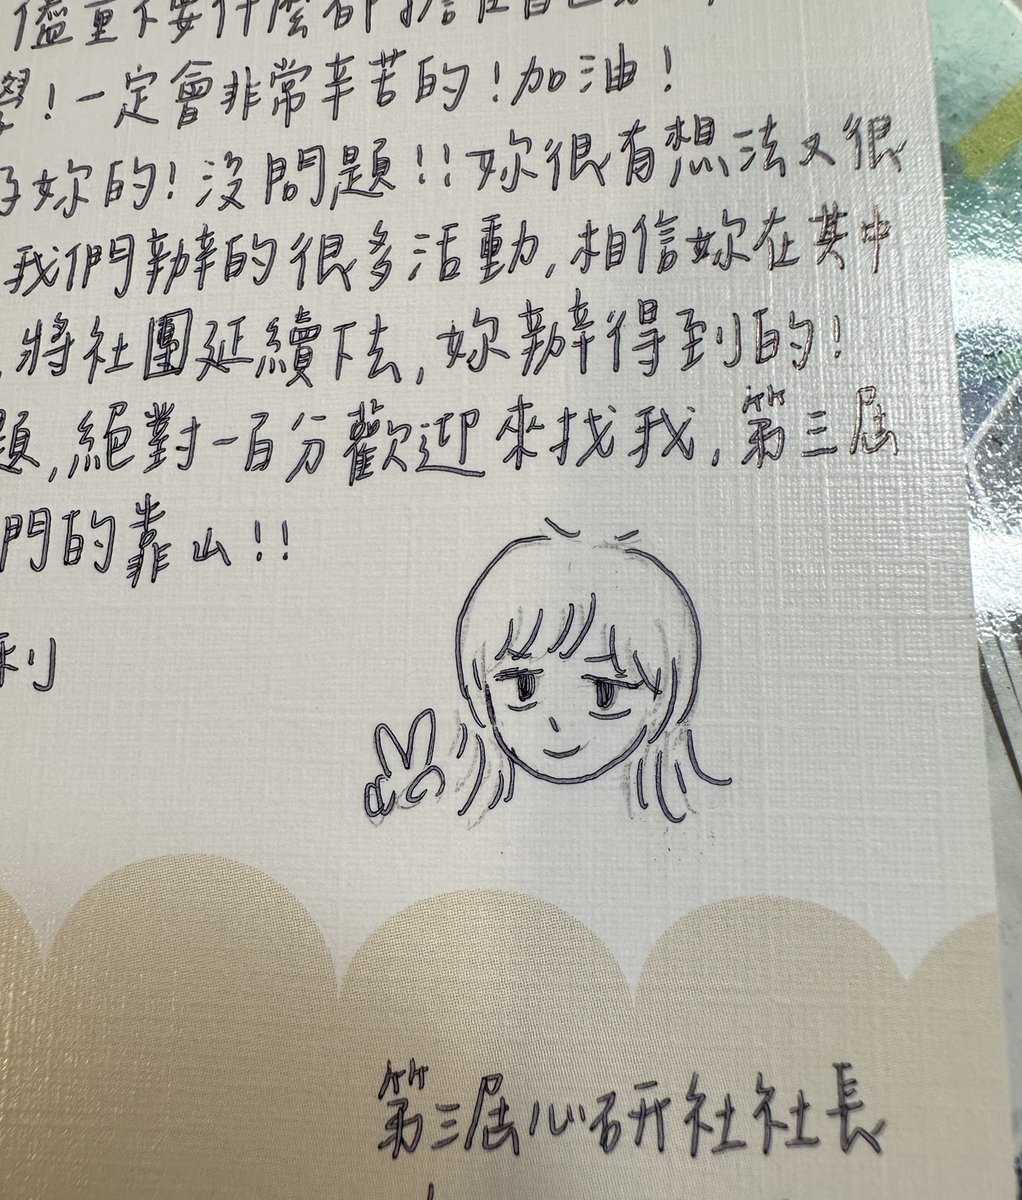 儘量不要什麼都擔在自己
學！一定會非常辛苦的！加油！
妳的！沒問題！！妳很有想法又很
我們辦的很多活動，相信妳在其中
，將社團延續下去，妳辦得到的！
題，絕對一百分歡迎來找我，第三屆
們的靠山！！
利
第三屆心研社社長